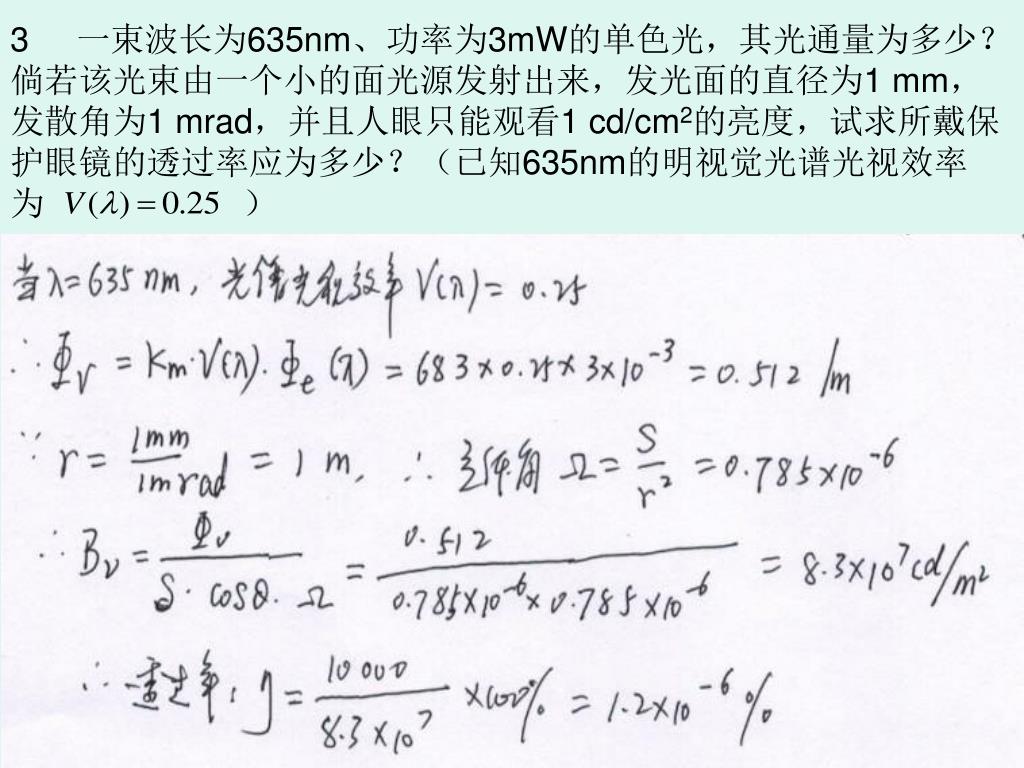 3 一束波长为635nm、功率为3mW的单色光，其光通量为多少？
倘若该光束由一个小的面光源发射出来，发光面的直径为1 mm，
发散角为1 mrad，并且人眼只能观看1 cd/cm²的亮度，试求所戴保
护眼镜的透过率应为多少？（已知635nm的明视觉光谱光视效率
为 V(λ)=0.25 ）
当λ=635 nm, 光谱光视效率 V(λ)= 0.25
∴ Φv = Km·V(λ)·Φe(λ) = 683×0.25×3×10⁻³ = 0.512 lm
∵ r = 1mm/1mrad = 1 m, ∴ 立体角 Ω = S/r² = 0.785×10⁻⁶
∴ Bv = Φv/(S·cosθ·Ω) = 0.512/(0.785×10⁻⁶×0.785×10⁻⁶) = 8.3×10⁷ cd/m²
∴ 透过率: η = 10000/(8.3×10⁷) ×100% = 1.2×10⁻⁶ %